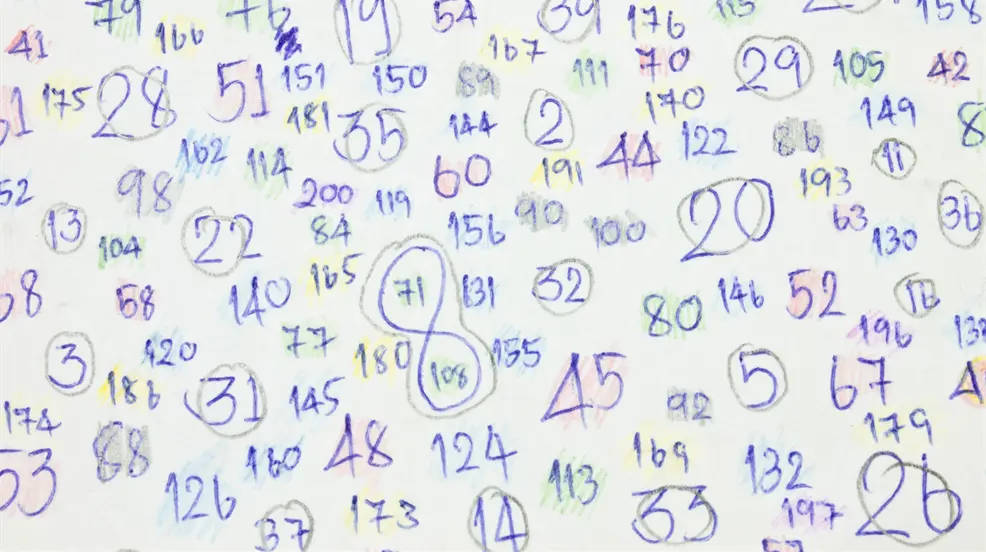 79 76 19 54 39 176 115 158
41 166 167
28 51 151 150 89 111 70 29 105 42
175 181 35 144 2 170 149
162 114 60 191 44 122 86 11
98 200 119 90 100 20 193 63 36
13 104 22 84 156 130
58 140 165 8 71 131 32 80 146 52 16
3 120 77 180 108 155 45 5 196 67
186 31 145 92
174 88 48 124 169 179
53 126 160 113 132 26
37 173 14 33 197